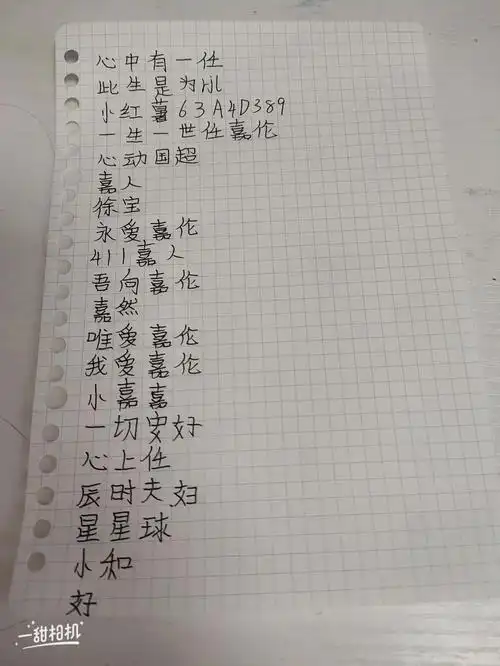 心中有一任
此生是为JL
小红薯63A4D389
一生一世任嘉伦
心动国超
嘉人
徐宝
永爱嘉伦
411嘉人
吾向嘉伦
嘉然
唯爱嘉伦
我爱嘉伦
小嘉嘉
一切安好
心上任
辰时夫妇
星星球
小和
好
一甜相机